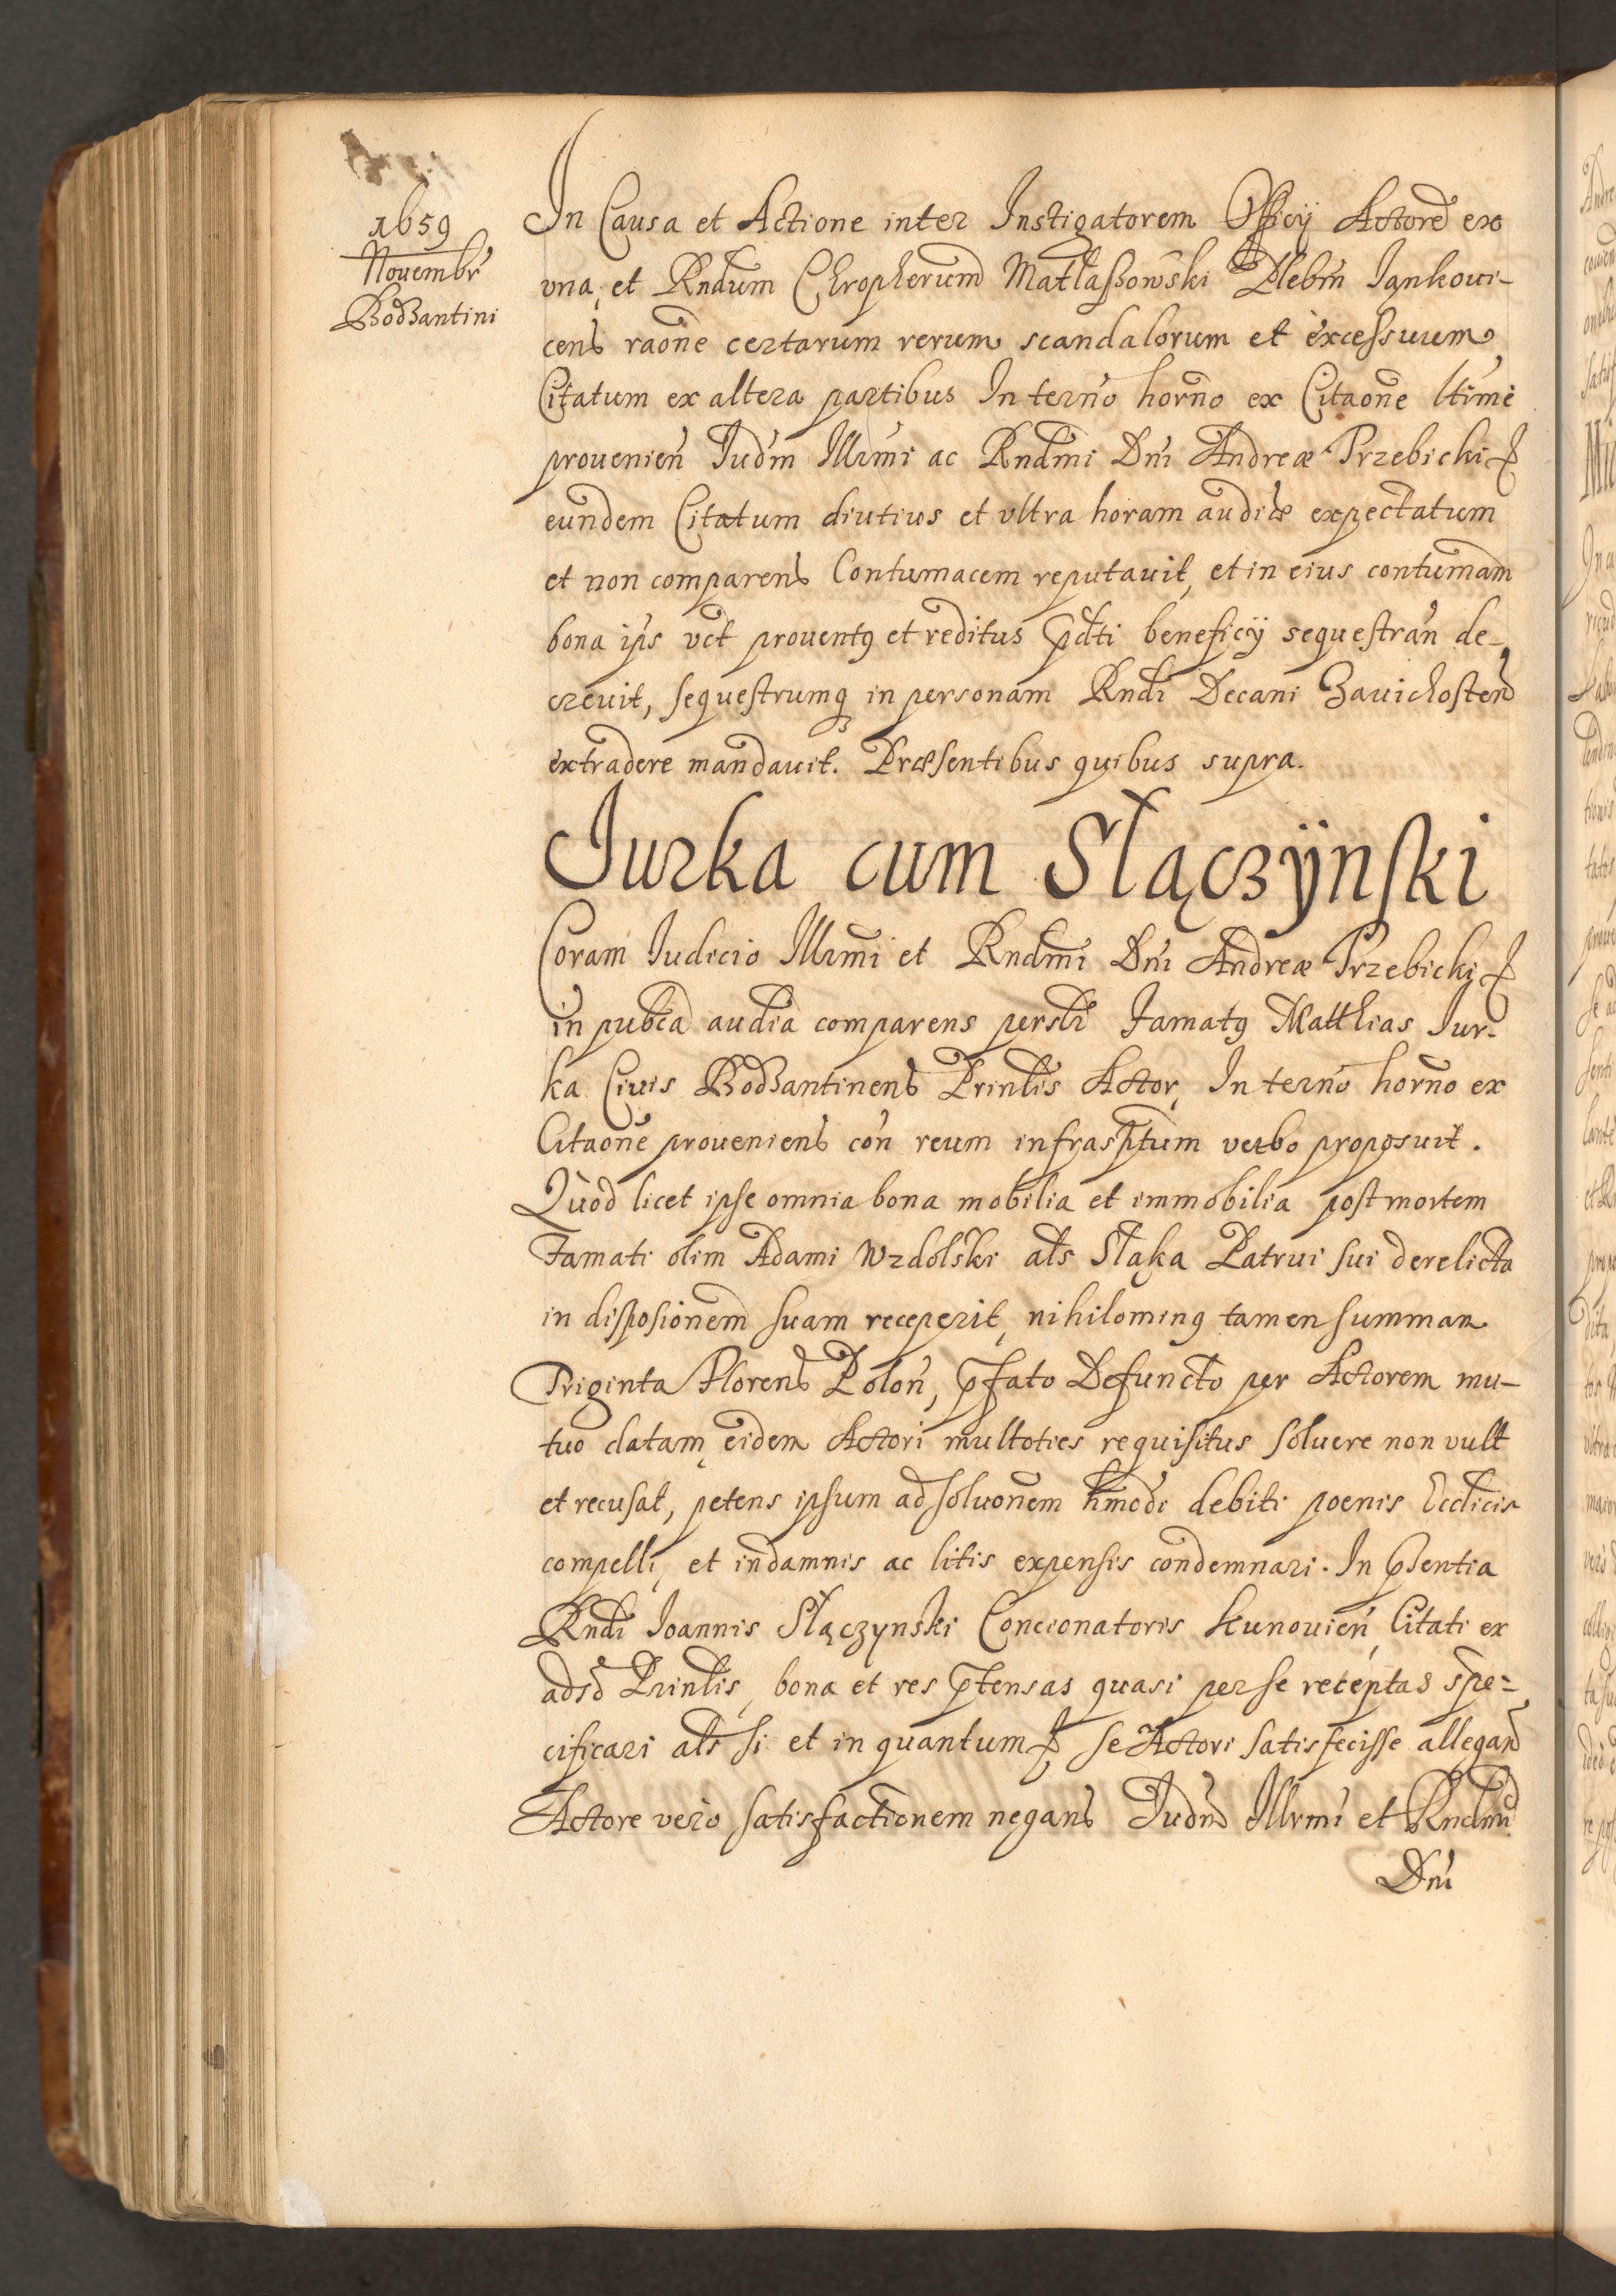 1659
Novembr̃
Bodzantini
In Causa et Actione inter Instigatorem Officÿ Actorẽ ex
vna, et Rndum Chropherum Matłaszowski Plebm̃ Jankoui-
cens raoñe certarum rerum scandalorum et excessuum
Citatum ex altera partibus In terño horño ex Citaoñe ltime
prouenieñ Judm̃ Illrm̃i ac Rndm̃i Dñi Andreæ Trzebicki &
eundem Citatum diutius et vltra horam audi expectatum
et non comparens Contumacem reputauit, et in eius contumam̃
bona ips vct prouentq et reditus p̃dti beneficÿ sequestrañ de-
creuit, sequestrumq in personam Rndi Decani Zauichosteñ
extradere mandauit. Præsentibus quibus supra.
Jurka cum Słączÿnski
Coram Judicio Illrm̃i et Rndm̃i Dñi Andreæ Trzebicki &
in pubca audia comparens persłi Famatq Matthias Jur-
ka Ciuis Bodzantinens Prinłis Actor, In terño horño ex
Citaoñe proueniens coñ reum infrasptum verbo proposuit.
Quod licet ipse omnia bona mobilia et immobilia post mortem
Famati olim Adami Wzdolski ałs Słąka Patrui sui derelicta
in disposionem̃ suam receperit, nihilominq tamen summam
Triginta Florens Poloñ, p̃fato Defuncto per Actorem mu-
tuo datam, eidem Actori multoties requisitus soluere non vult
et recusat, petens ipsum ad soluoñem hm̃odi debiti poenis Ecclicis
compelli, et in damnis ac litis expensis condemnari. In p̃sentia
Rndi Joannis Słączynski Concionatoris Kunouieñ, Citati ex
adso Prinłis, bona et res p̃tensas quasi per se receptas spe=
cificari ałs si et in quantum & se Actori satisfecisse allegañ
Actore vero satisfactionem negans Judm̃ Illrmi et Rndmi
Dñi